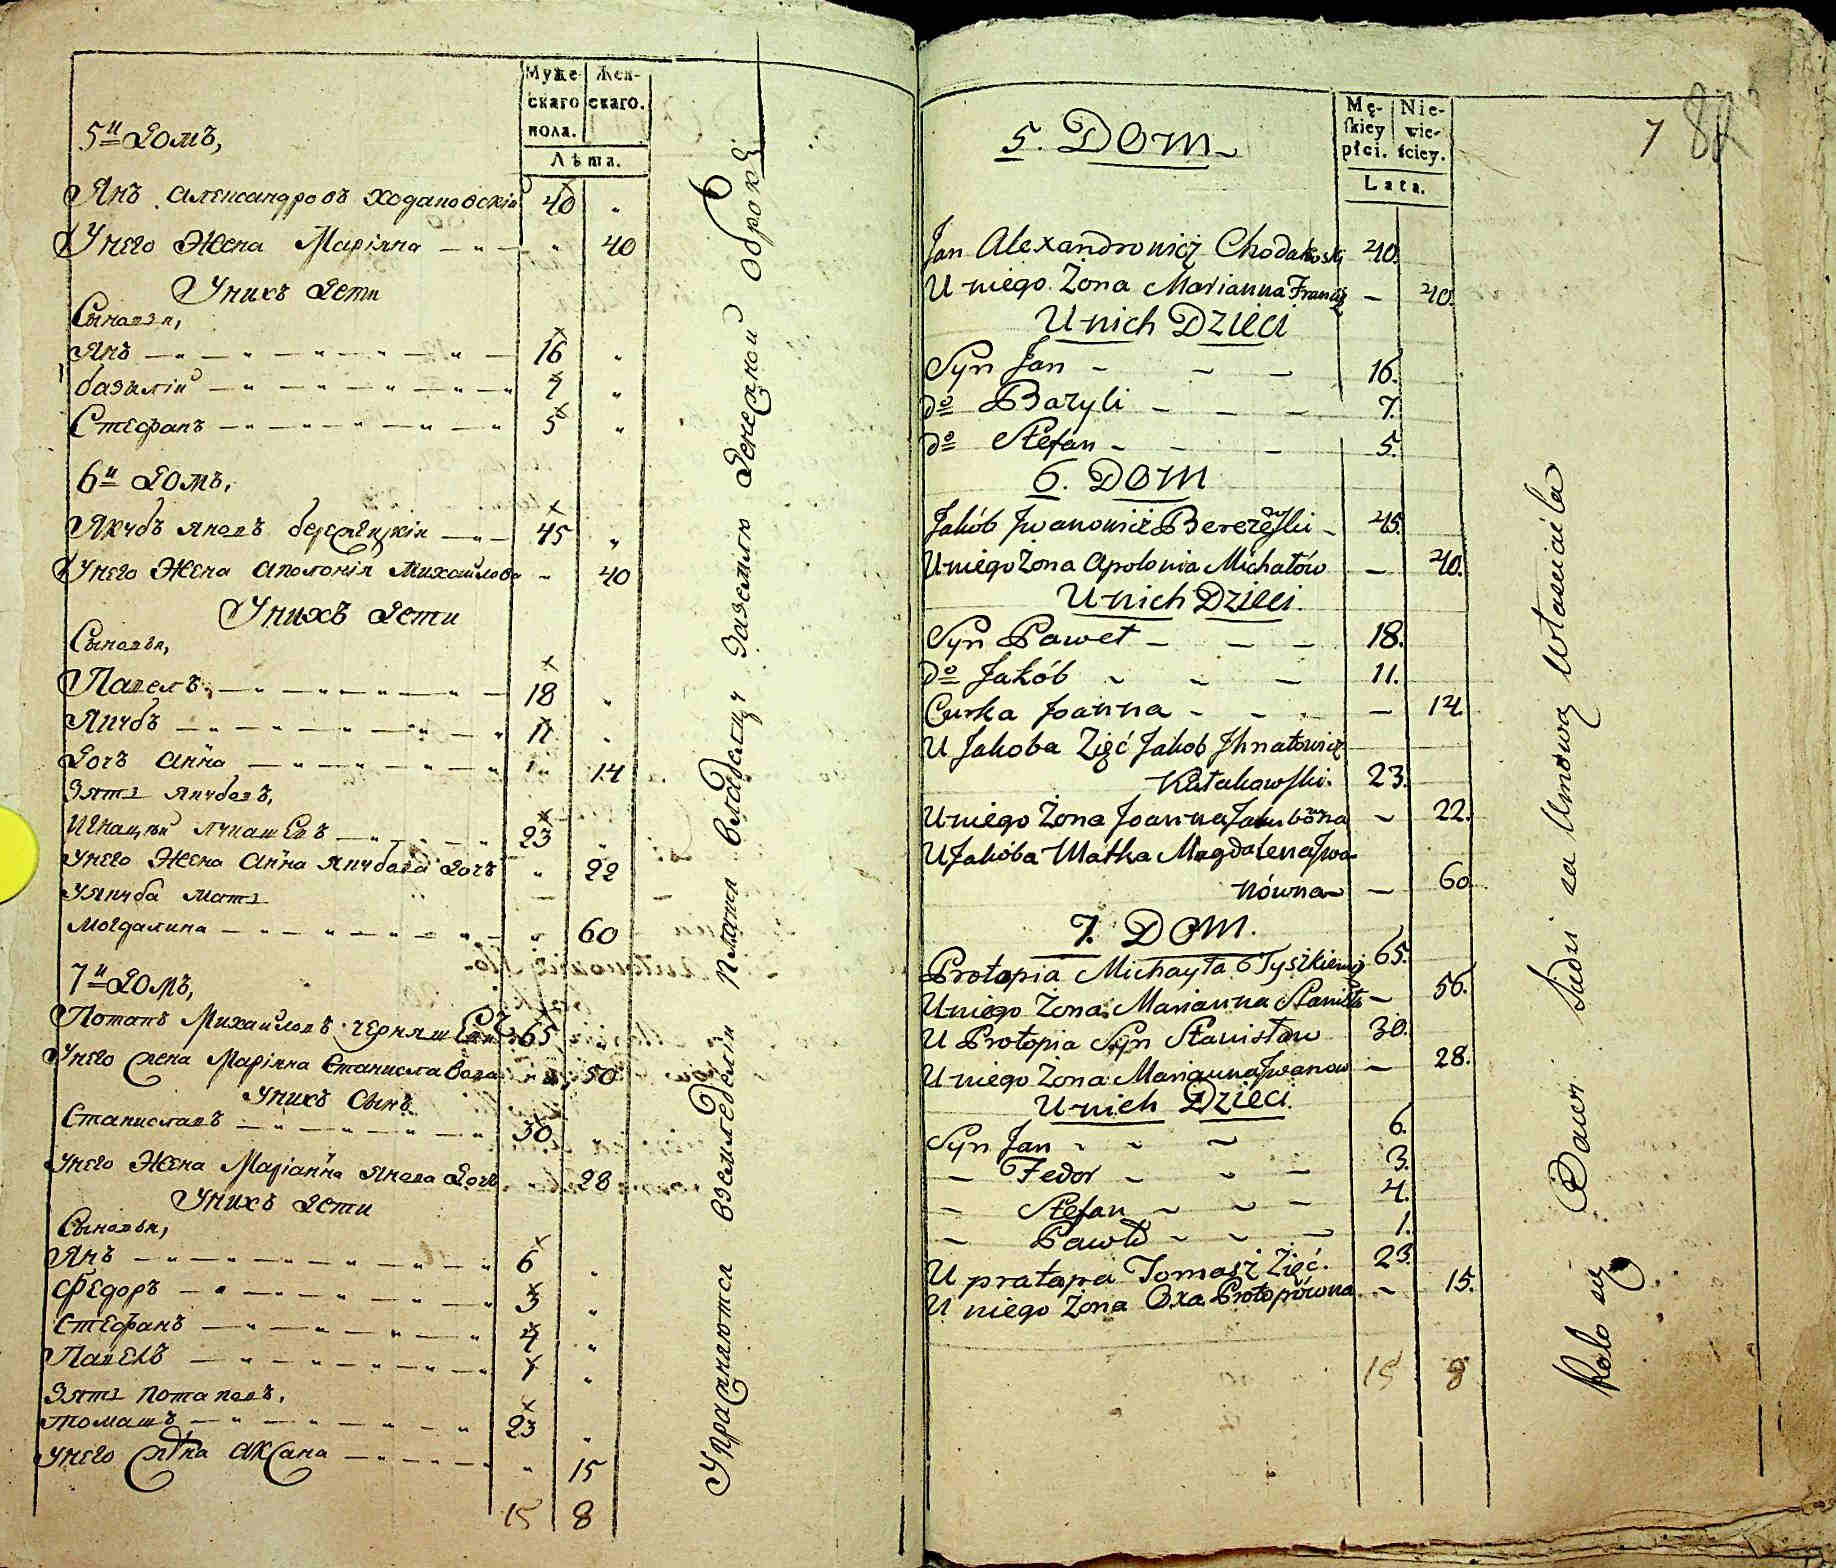 Муже-
скаго
пола.
Жен-
скаго.
Лѣта.
5й Домъ,
Янъ Александровъ Ходаковскій 40 „
Унего Жена Маріяна — „ — „ 40
Унихъ Дети
Сыновья,
Янъ — „ — „ — „ — „ — 16 „
базилій — „ — „ — „ — „ 7 „
Стефанъ — „ — „ — „ — „ 5 „
6й Домъ,
Якубъ яновъ — „ — 45 „
Унего Жена аполонія Михайлова — 40
Унихъ Дети
Сыновья,
Павелъ, — „ — „ — „ — „ — 18 „
Якубъ — „ — „ — „ — „ 11 „
Дочъ анна — „ — „ — „ — „ 14
Зять якубовъ,
Игнацый лукашевъ — „ — „ 23 „
Унего Жена анна якубова Дочъ „ 22
Уякуба мать
могдалина — „ — „ — „ — „ 60
7й Домъ,
Потапъ Михайловъ 65 „
Унего жена Маріяна Станиславова „ 50
Унихъ Сынъ
Станиславъ — „ — „ — „ — „ 30
Унего Жена Маріанна янова Дочъ „ 28
Унихъ Дети
Сыновья,
Янъ — „ — „ — „ — „ 6 „
Федоръ — „ — „ — „ — „ 3 „
Стефанъ — „ — „ — „ — „ 4 „
Павелъ — „ — „ — „ — „ 1 „
Зять потаповъ,
томашъ — „ — „ — „ — „ 23 „
Унего аксана — „ — „ — „ „ 15
15 8
Упражняются вземледелiи платя владелцу заземлю Денежной оброкъ
Mę-
skiey
płci.
Nie-
wie-
ściey.
Lata.
7
5. DOM
Jan Alexandrowicz Chodakoski 40.
U niego Żona Marianna — 40.
U nich Dzieci
Syn Jan — — — 16.
do Bazyli — — — 7.
do Stefan — — — 5.
6. DOM
Jakób Jwanowicz — 45.
U niego Żona Apolonia Michałów — 40.
U nich Dzieci
Syn Paweł — — — 18.
do Jakób — — — 11.
Curka Joanna — — — 14.
U Jakoba Zięć Jakob Jhnatowicz
23.
U niego Żona Joanna Jakubówna — 22.
U Jakóba Matka Magdalena Jwa-
nówna — — 60.
7. DOM.
Protopia Michayła Tyszkiewicz 65.
U niego Żona Marianna Stanisła — 56.
U Protopia Syn Stanisław 30.
U niego Żona Marianna Jwanow — 28.
U nich Dzieci
Syn Jan — — — 6.
— Fedor — — — 3.
— Stefan — — — 4.
— Paweł — — — 1.
U pratapa Tomasz Zięć. 23.
U niego Żona Oxa Protopówna — 15.
15 8
Rolo się Bawi Ludzi za Umową Własciciela